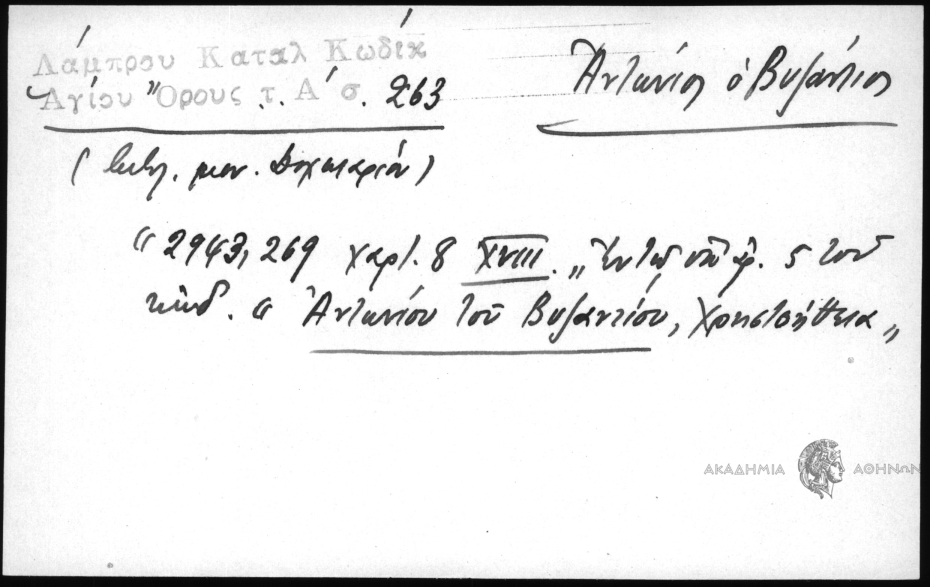 Λάμπρου Καταλ Κωδίκ
Ἁγίου Ὄρους τ. Α΄ σ. 263
Ἀντώνιος ὁ Βυζάντιος
(βιβλ. μον. Δοχειαρίου)
"2943, 269 χαρτ. 8 XVIII. "Ἐν τῷ ὑπ' ἀρ. 5 τοῦ
κώδ. "Ἀντωνίου τοῦ Βυζαντίου, Χρηστοήθεια"
ΑΚΑΔΗΜΙΑ ΑΘΗΝΩΝ